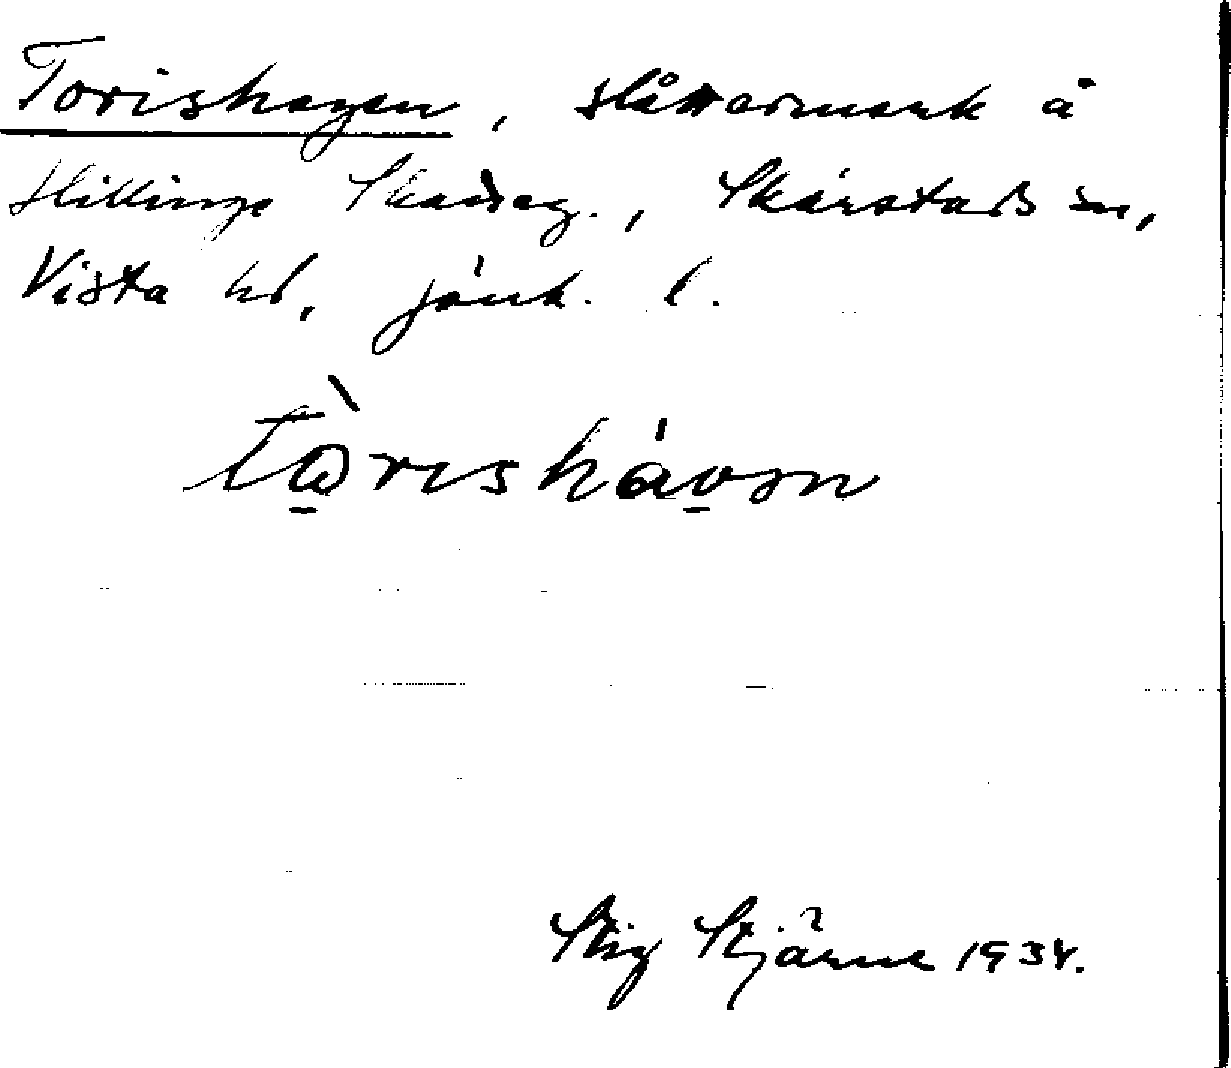 Torishagen, slåttermark å
Slittinge Skatteg., Skärstads sn,
Vista hd, Jönk. l.
tòrishávǝn
Stig Stjärne 1934.